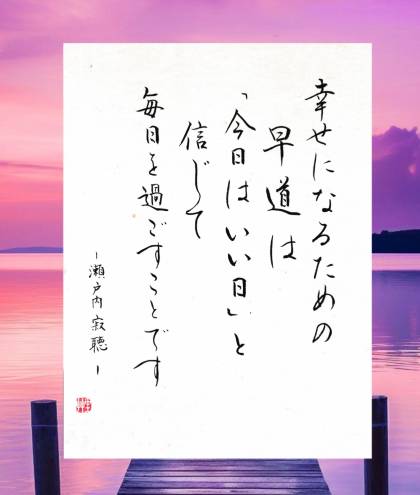 幸せになるための
早道は
「今日はいい日」と
信じて
毎日を過ごすことです
－瀬戸内寂聴－